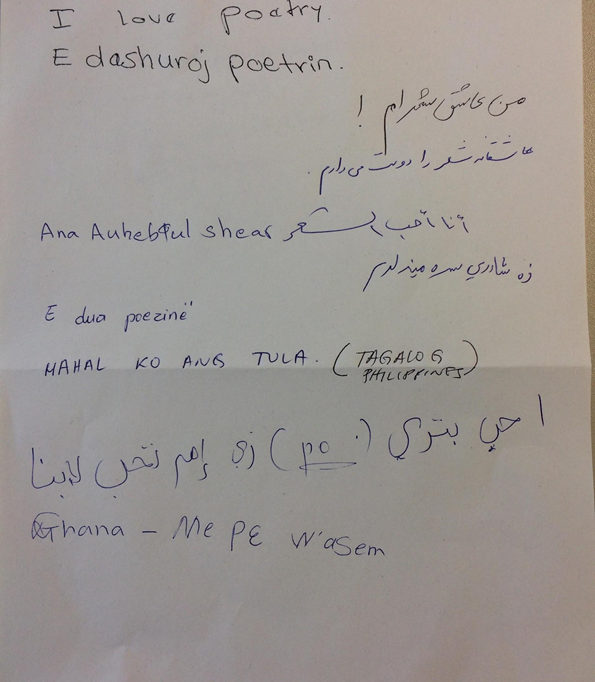 I love poetry.
E dashuroj poetrin.
من عاشق شعرام !
عاشقانه شعر را دوست می دارم.
Ana Auhebūul shear أنا أحب الشعر
زه شاعري سره مينه لرم
E dua poezinë
MAHAL KO ANG TULA. (TAGALOG PHILIPPINES)
(po)
Ghana – Me pɛ w'asem